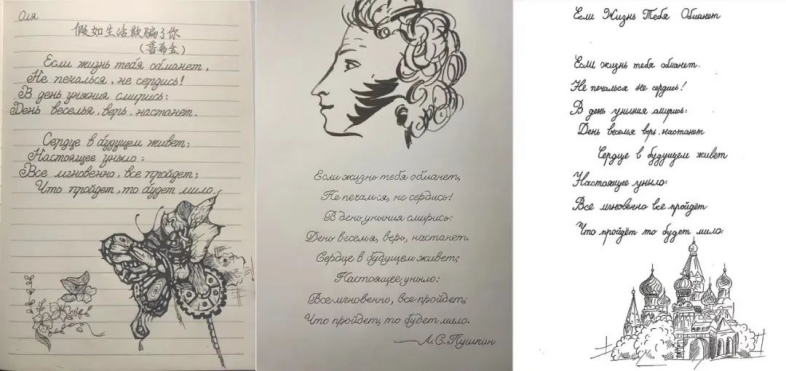 Оля
假如生活欺骗了你
(普希金)
Если жизнь тебя обманет,
Не печалься, не сердись!
В день уныния смирись:
День веселья, верь, настанет.
Сердце в будущем живет;
Настоящее уныло:
Все мгновенно, все пройдет;
Что пройдет, то будет мило.
Если жизнь тебя обманет,
Не печалься, не сердись!
В день уныния смирись:
День веселья, верь, настанет.
Сердце в будущем живет;
Настоящее уныло:
Все мгновенно, все пройдет;
Что пройдет, то будет мило.
—А.С. Пушкин
Если Жизнь Тебя Обманет
Если жизнь тебя обманет.
Не печалься не сердись!
В день уныния смирись:
День веселя верь, настанет
Сердце в будущем живет
Настоящее уныло:
Все мгновенно все пройдёт
Что пройдёт то будет мило